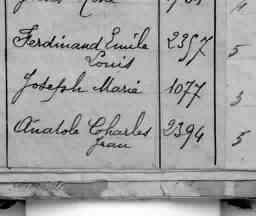 Ferdinand Emile 2357 5
Louis
Joseph Marie 1077 3
Anatole Charles 2394 5
Jean